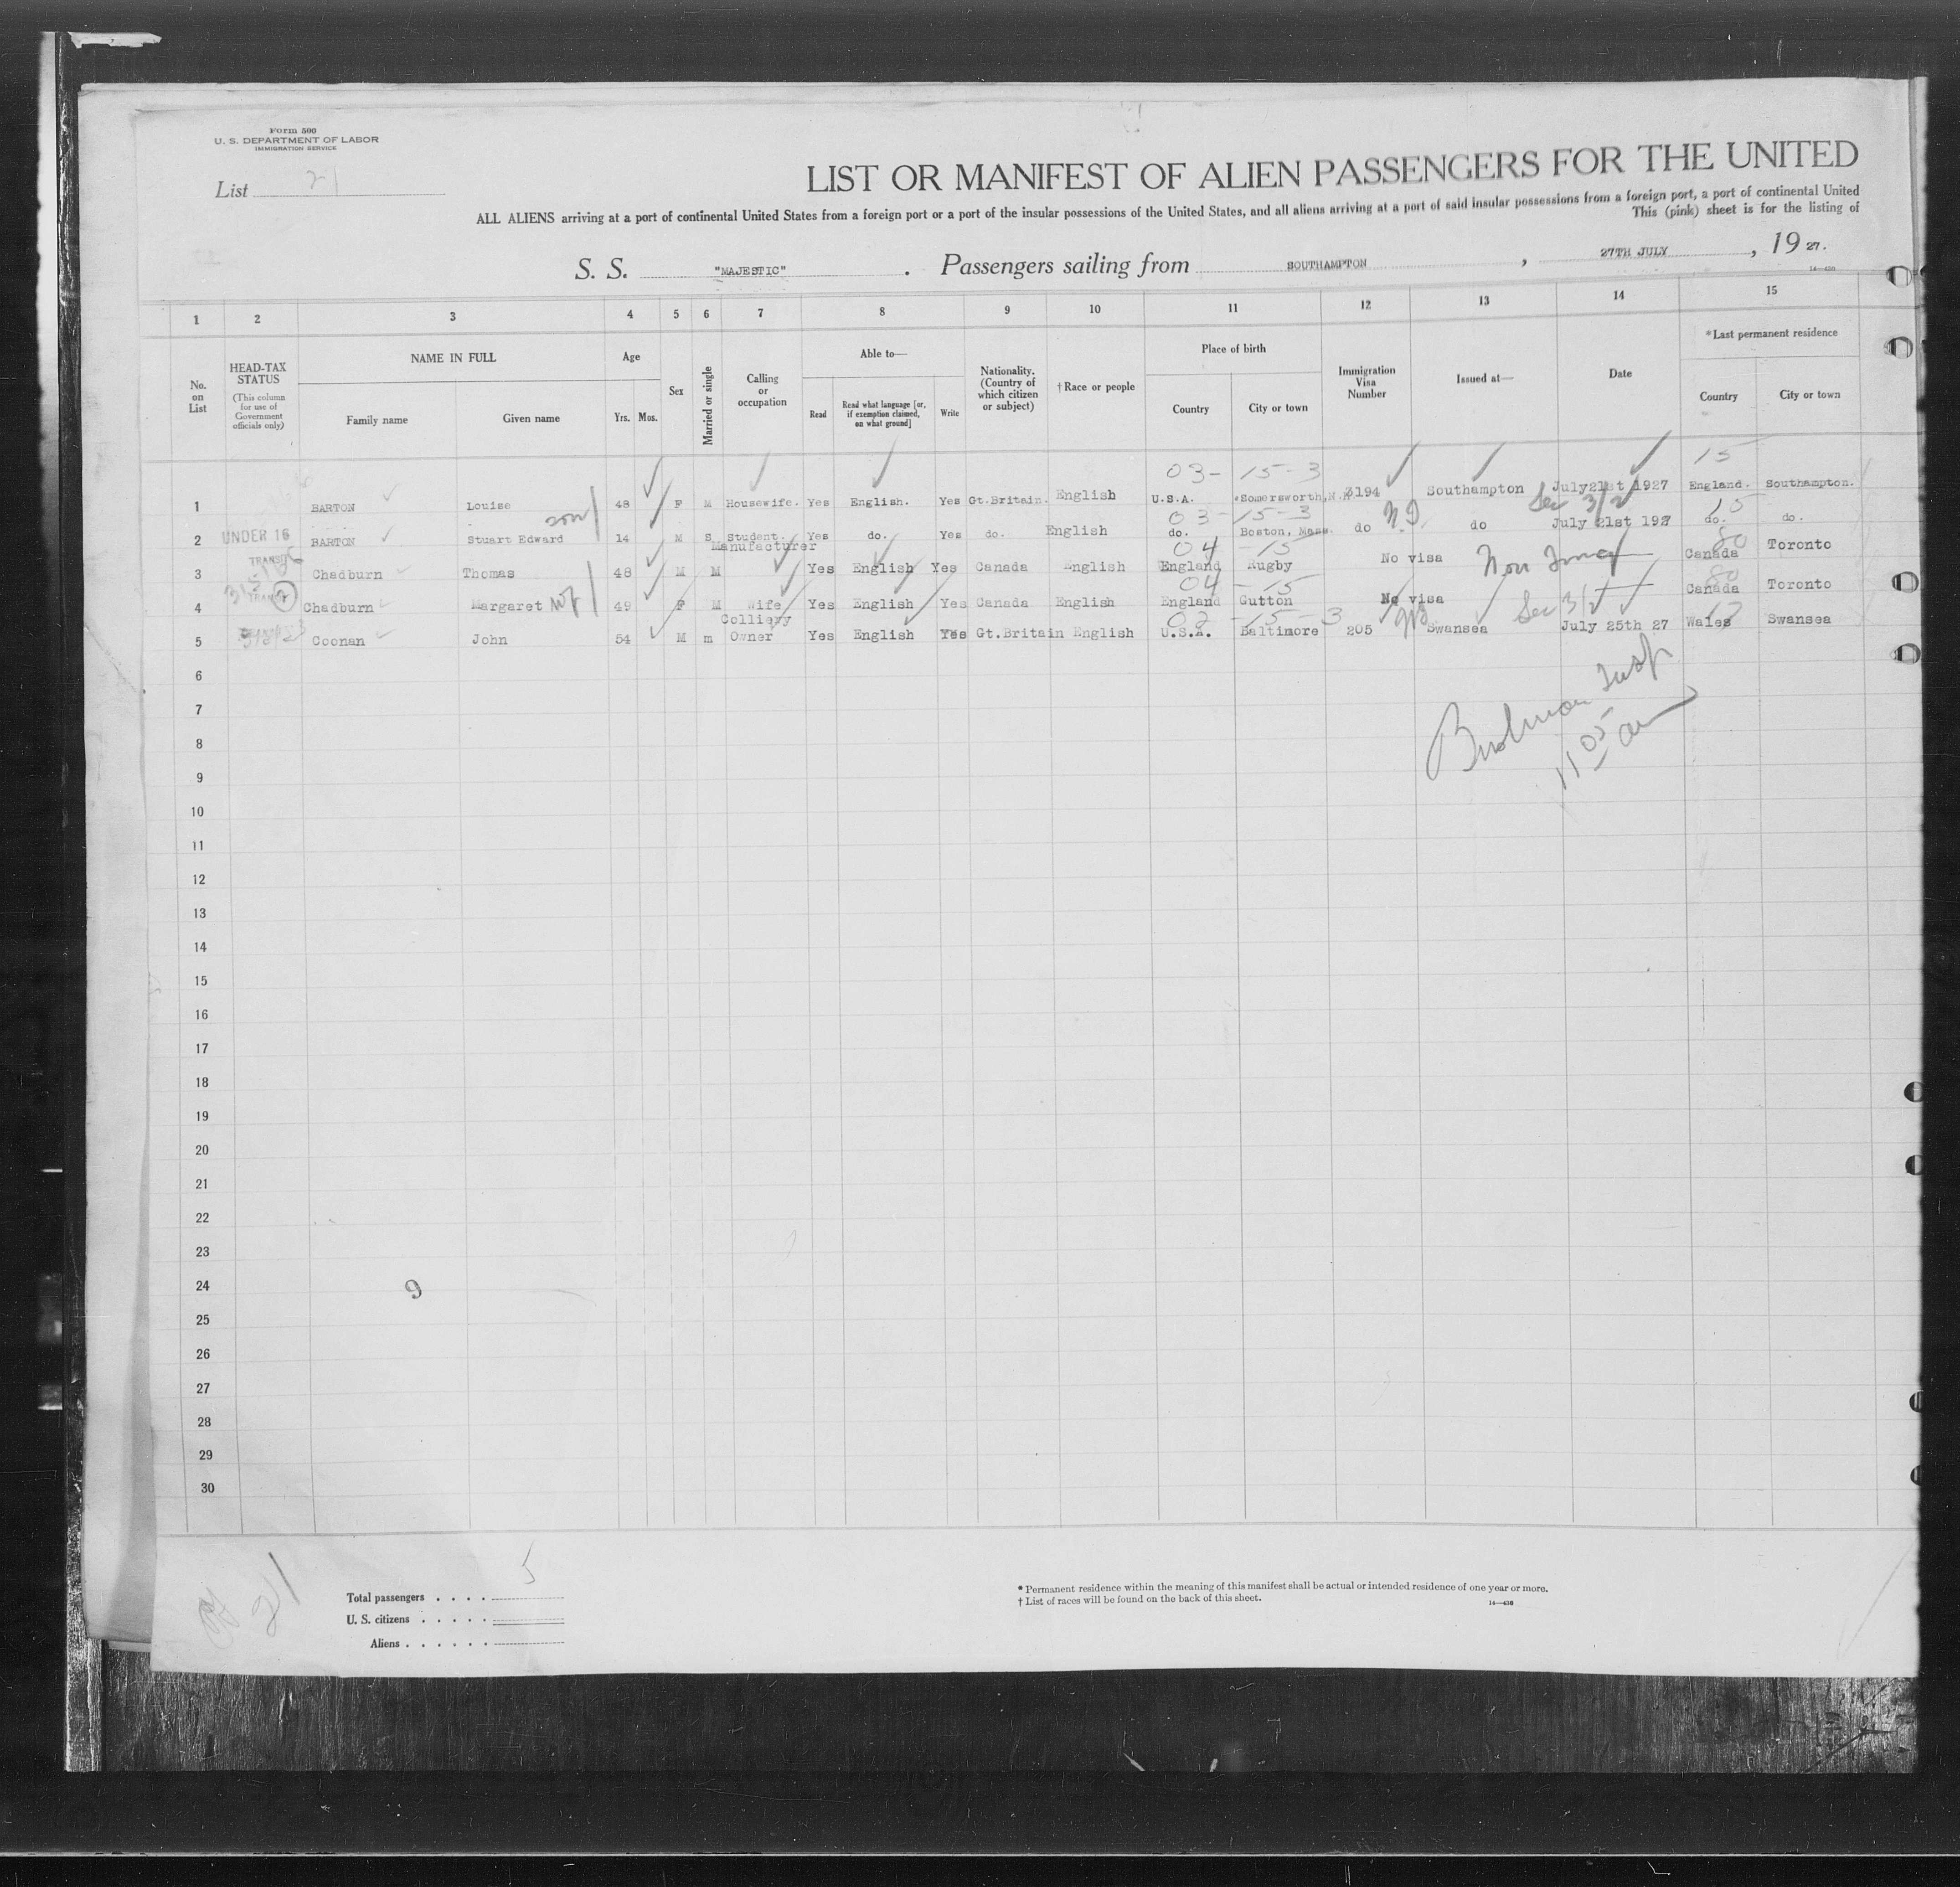 Form 500
U. S. DEPARTMENT OF LABOR
IMMIGRATION SERVICE
List 21
LIST OR MANIFEST OF ALIEN PASSENGERS FOR THE UNITED
ALL ALIENS arriving at a port of continental United States from a foreign port or a port of the insular possessions of the United States, and all aliens arriving at a port of said insular possessions from a foreign port, a port of continental United
This (pink) sheet is for the listing of
S. S. "MAJESTIC" . Passengers sailing from SOUTHAMPTON , 27TH JULY , 19 27.
14—438
1 2 3 4 5 6 7 8 9 10 11 12 13 14 15
No. on List
HEAD-TAX STATUS
(This column for use of Government officials only)
NAME IN FULL
Family name Given name
Age
Yrs. Mos.
Sex
Married or single
Calling or occupation
Able to—
Read Read what language [or, if exemption claimed, on what ground] Write
Nationality. (Country of which citizen or subject)
†Race or people
Place of birth
Country City or town
Immigration Visa Number
Issued at—
Date
*Last permanent residence
Country City or town
03- 15-3 15
1 BARTON Louise 48 F M Housewife. Yes English. Yes Gt.Britain. English U.S.A. Somersworth, N.H. 3194 Southampton July 21st 1927 England. Southampton.
son Sec 3/2
03- 15-3 15
2 UNDER 16 BARTON Stuart Edward 14 M S Student. Yes do. Yes do. English do. Boston, Mass. do do July 21st 1927 do. do.
04 - 15 80
3 TRANSIT Chadburn Thomas 48 M M Manufacturer Yes English Yes Canada English England Rugby No visa Non Immg Canada Toronto
04 - 15 80
4 Chadburn Margaret wf 49 F M Wife Yes English Yes Canada English England Gutton No visa Canada Toronto
Sec 3/2
02 - 15 - 3
5 Coonan John 54 M m Colliery Owner Yes English Yes Gt.Britain English U.S.A. Baltimore 205 Swansea July 25th 27 Wales Swansea
6
Insp
7
11 05 am
8
9
10
11
12
13
14
15
16
17
18
19
20
21
22
23
24
9
25
26
27
28
29
30
21
Total passengers . . . . 5
U. S. citizens . . . . .
Aliens . . . . . .
* Permanent residence within the meaning of this manifest shall be actual or intended residence of one year or more.
† List of races will be found on the back of this sheet.
14—438